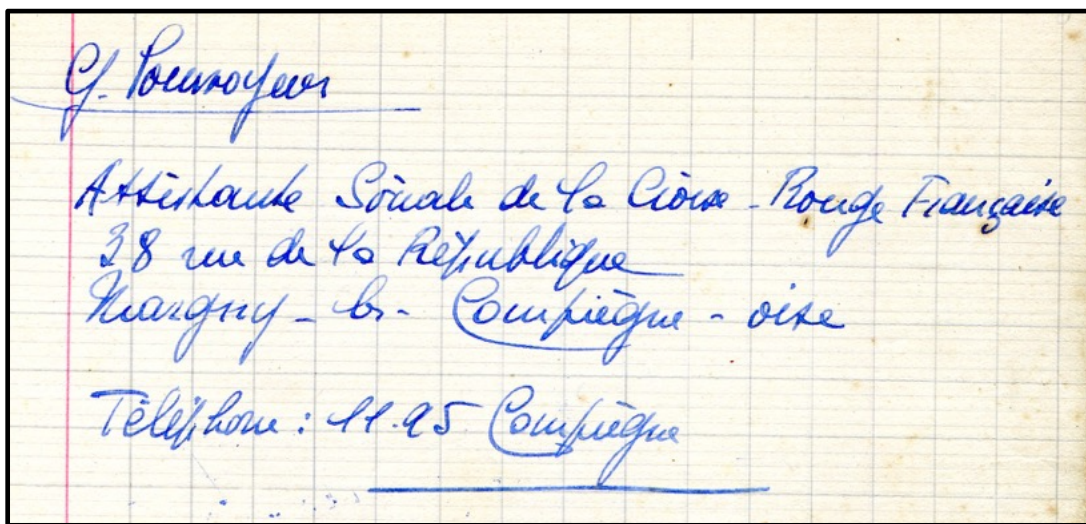 G. Pourvoyeur
Assistante Sociale de la Croix-Rouge Française
38 rue de la République
Margny-les-Compiègne - oise
Téléphone: 11.95 Compiègne